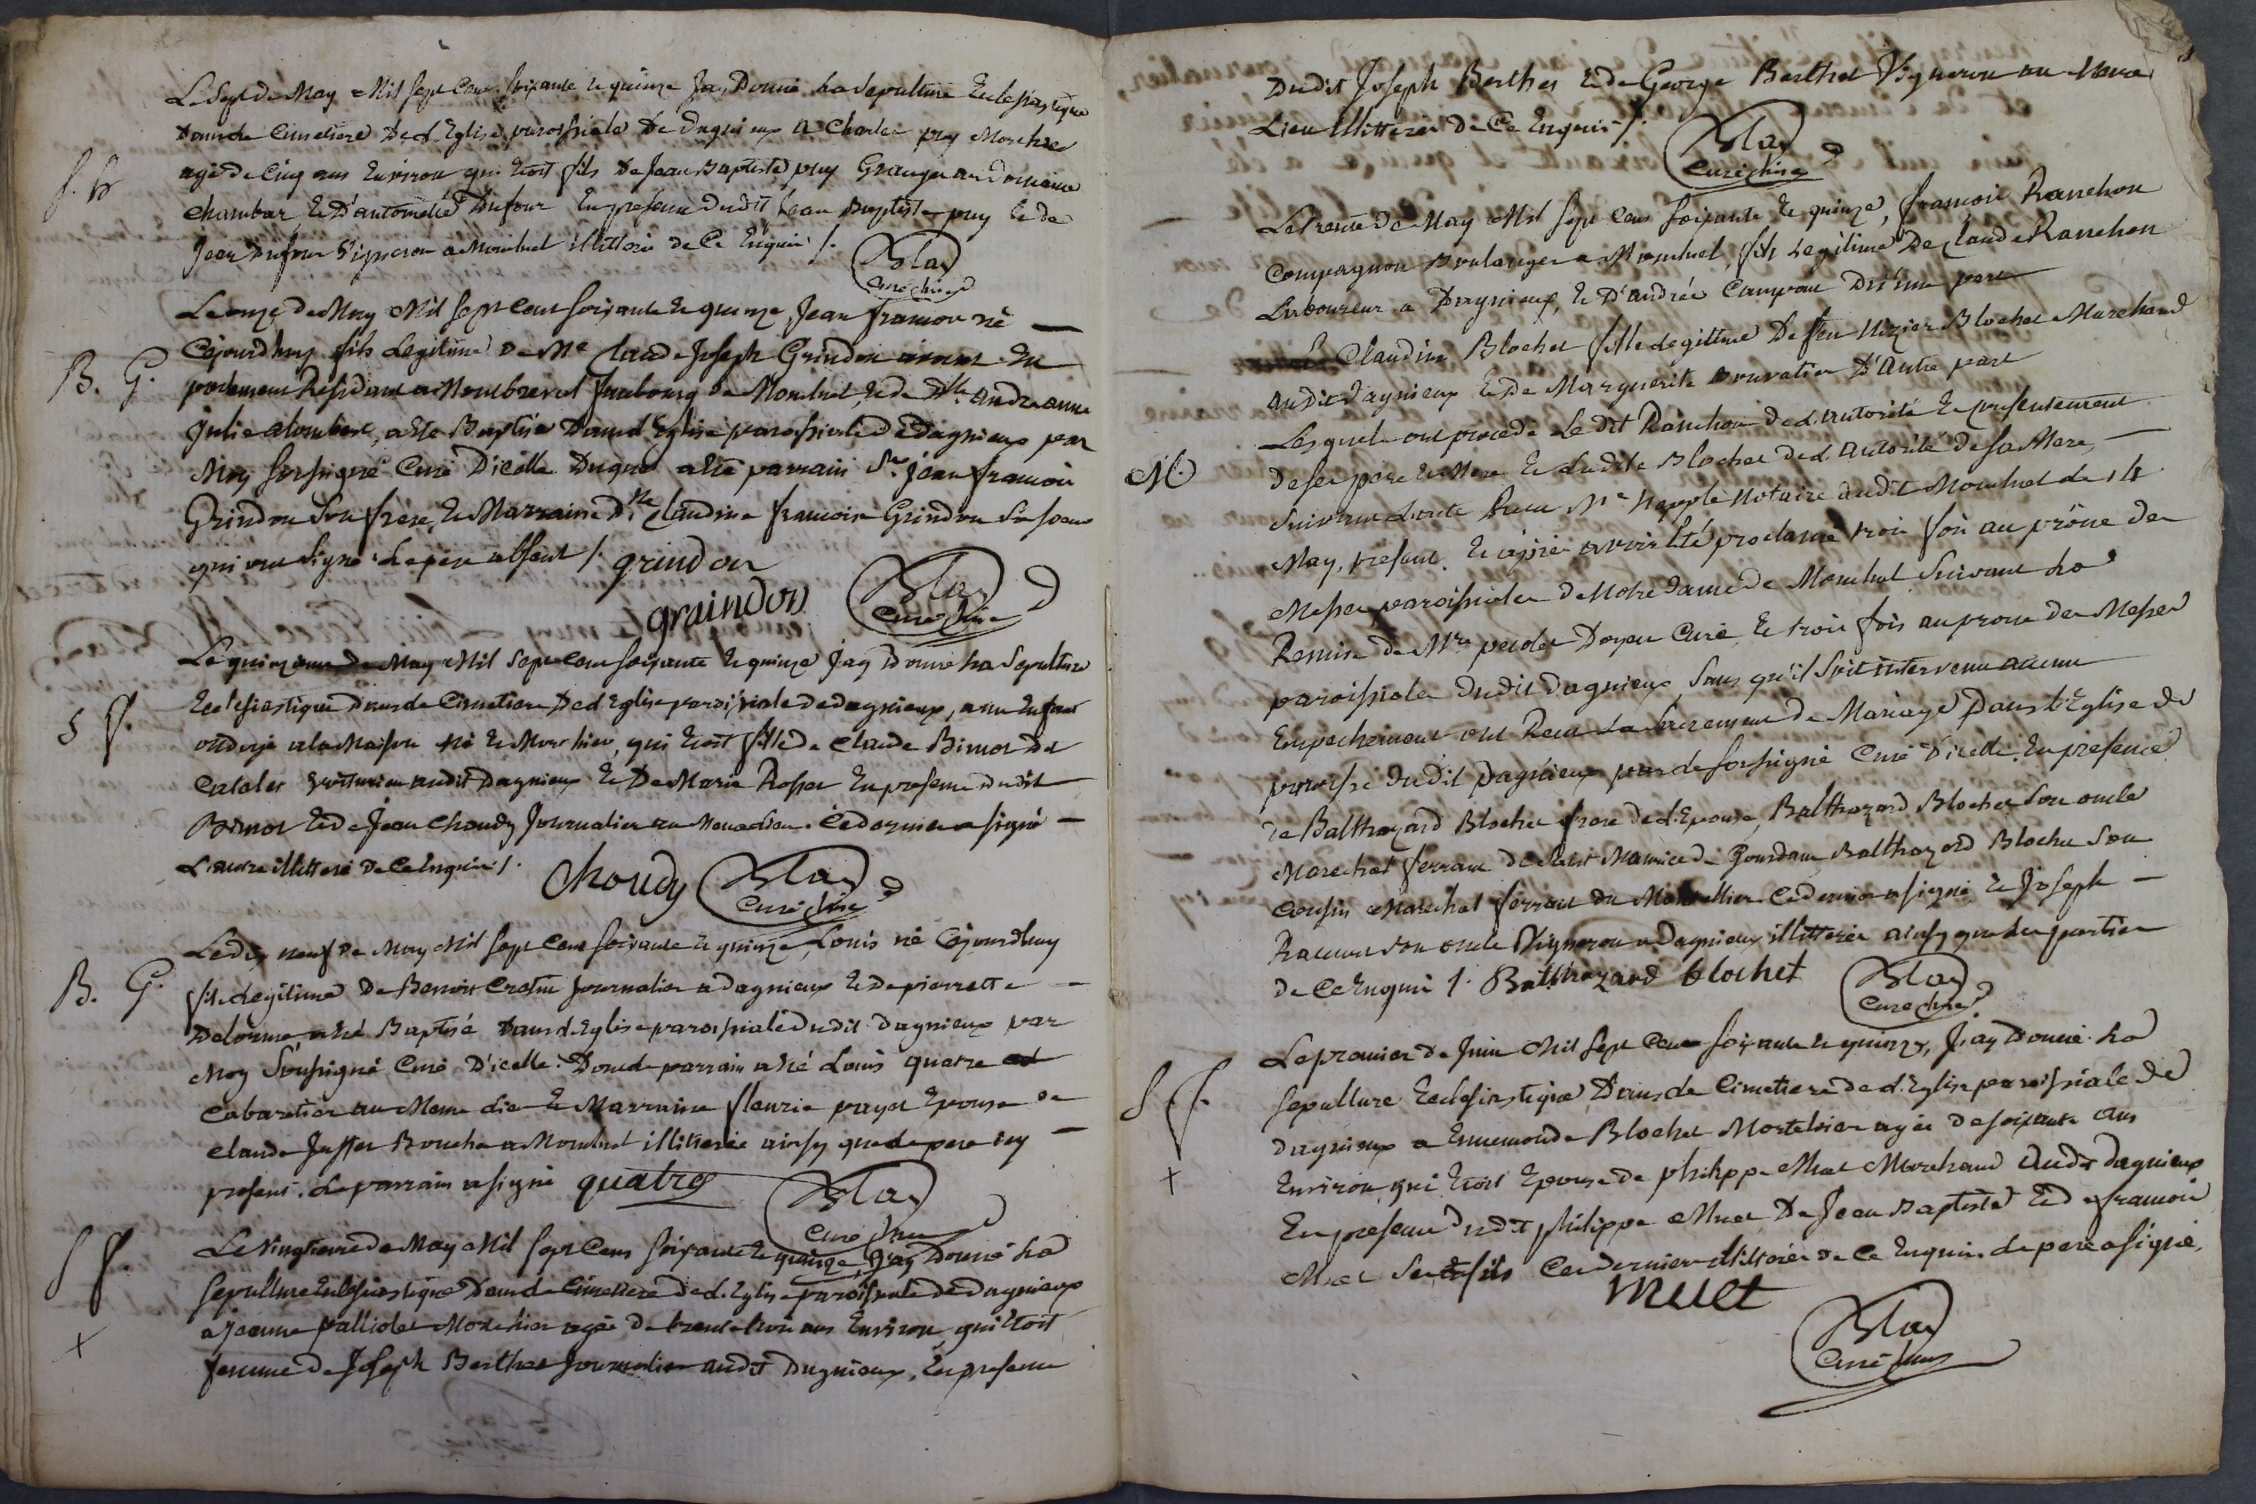 Le Sept de May Mil Sept Cent Soixante et quinze J'ai Donné La Sepulture Eclesiastique
Dans le Cimetiere De L'Eglise paroissiale De Dagnieux a Charles puy Mort hier
agé de Cinq ans Environ qui Etoit fils De Jean Baptiste puy Granger au Domaine
Chambar Et D'antoinette Dufour En presence dudit Jean Baptiste puy Et de
Jean Dufour Vigneron a Montluel illitteré de Ce Enquis /.
Blay
Curé
Le onze de May Mil Sept Cent Soixante et quinze Jean francois né
B. G.
Cejourdhuy fils Legitime de Me Claude Joseph Grindon avocat En
parlement Residant a Montbreval fauxbourg de Montluel, Et de Dlle andre anne
Julie alombert, a été Baptisé Dans L'Eglise paroissiale de Dagnieux par
Moy Soussigné Curé D'icelle Duquel a été parrain Sr. Jean francois
Grindon Son frere, Et Marraine Dlle Claudine francoise Grindon Sa soeur
qui ont signé Le pere absent /. grindon
graindon
Blay
Curé
Le quinzieme de May Mil Sept Cent Soixante Et quinze J'ay Donné La Sepulture
S f.
Ecclesiastique Dans le Cimetiere De L'Eglise paroissiale de Dagnieux, a un Enfant
ondoyé a la Maison né Et Mort hier, qui Etoit fille de Claude Bimot Dit
Catalet Voiturier audit Dagnieux Et De Marie Rosset En presence dudit
Bimot Et de Jean Choudy Journalier au Ce dernier a signé
L'autre illitteré de Ce Enquis /.
Choudy
Blay
Curé
Le dix neuf de May Mil Sept Cent Soixante Et quinze, Louis né Cejourdhuy
B. G.
fils Legitime De Benoit Crotin Journalier a Dagnieux Et de pierrette
Delorme, a été Baptisé Dans L'Eglise paroissiale Dudit Dagnieux par
Moy Soussigné Curé D'icelle. Dont le parrain a été Louis quatre
Cabaretier au Meme Lieu Et Marraine fleurie payet Epouse de
Claude Boucher a Montluel illitterée ainsy que le pere icy
present. Le parrain a signé quatre
Blay
Curé
Le Vingtieme de May Mil Sept Cent Soixante Et quinze J'ay Donné La
S f.
Sepulture Eclesiastique Dans le Cimetiere de L'Eglise paroissiale de Dagnieux
a Jeanne palliolet Morte hier agée de trente trois ans Environ, qui Etoit
femme de Joseph Berthet Journalier audit Dagnieux, En presence
Dudit Joseph Berthet Et de George Berthet Vigneron au Meme
Lieu illitterés De Ce Enquis /.
Blay
Curé
Le trente de May Mil Sept Cent Soixante Et quinze, francois Ranchon
Compagnon Boulanger a Montluel, fils Legitime De Claude Ranchon
Laboureur a Dagnieux, Et D'andrée Campan D'Une part
Claudine Blochet fille Legitime De feu Blochet Marchand
audit Dagnieux Et de Marguerite D'Autre part
Lesquels ont procedé Le dit Ranchon de L'autorité Et presentement
M.
de ses pere Et Mere Et Ladite Blochet de L'autorité De sa Mere,
Suivant L'acte Recu Me Nepple Notaire audit Montluel Le 14
May, present. Et après avoir été proclamé trois fois au prône des
Messes paroissiales de Notre Dame de Montluel Suivant La
Remise de Mre Doyen Curé, Et trois fois au prone des Messes
paroissiales Dudit Dagnieux, Sans qu'il soit intervenu aucun
Empechement ont Recu Le Sacrement de Mariage Dans L'Eglise de
paroisse dudit Dagnieux par le Soussigné Curé D'icelle. En presence
de Balthazard Blochet frere de L'Epouse, Balthazard Blochet Son oncle
Marechal ferrant de Saint Maurice de Gourdans, Balthazard Blochet Son
Cousin Marechal ferrant au Montellier Ce dernier a signé, Et Joseph
Son oncle Vigneron a Dagnieux illitterés ainsy que Les parties
de Ce Enquis /. Balthazard blochet
Blay
Curé
Le premier de Juin Mil Sept Cent Soixante Et quinze, J'ay Donné La
S f.
Sepulture Ecclesiastique Dans le Cimetiere de L'Eglise paroissiale de
Dagnieux a Ennemonde Blochet Morte hier agée de soixante ans
Environ, qui Etoit Epouse de philippe Muet Marchand Audit Dagnieux
En presence dudit philippe Muet De Jean Baptiste Et de francois
Muet Ses fils Ces derniers illitterés de Ce Enquis. Le pere a signé.
muet
Blay
Curé